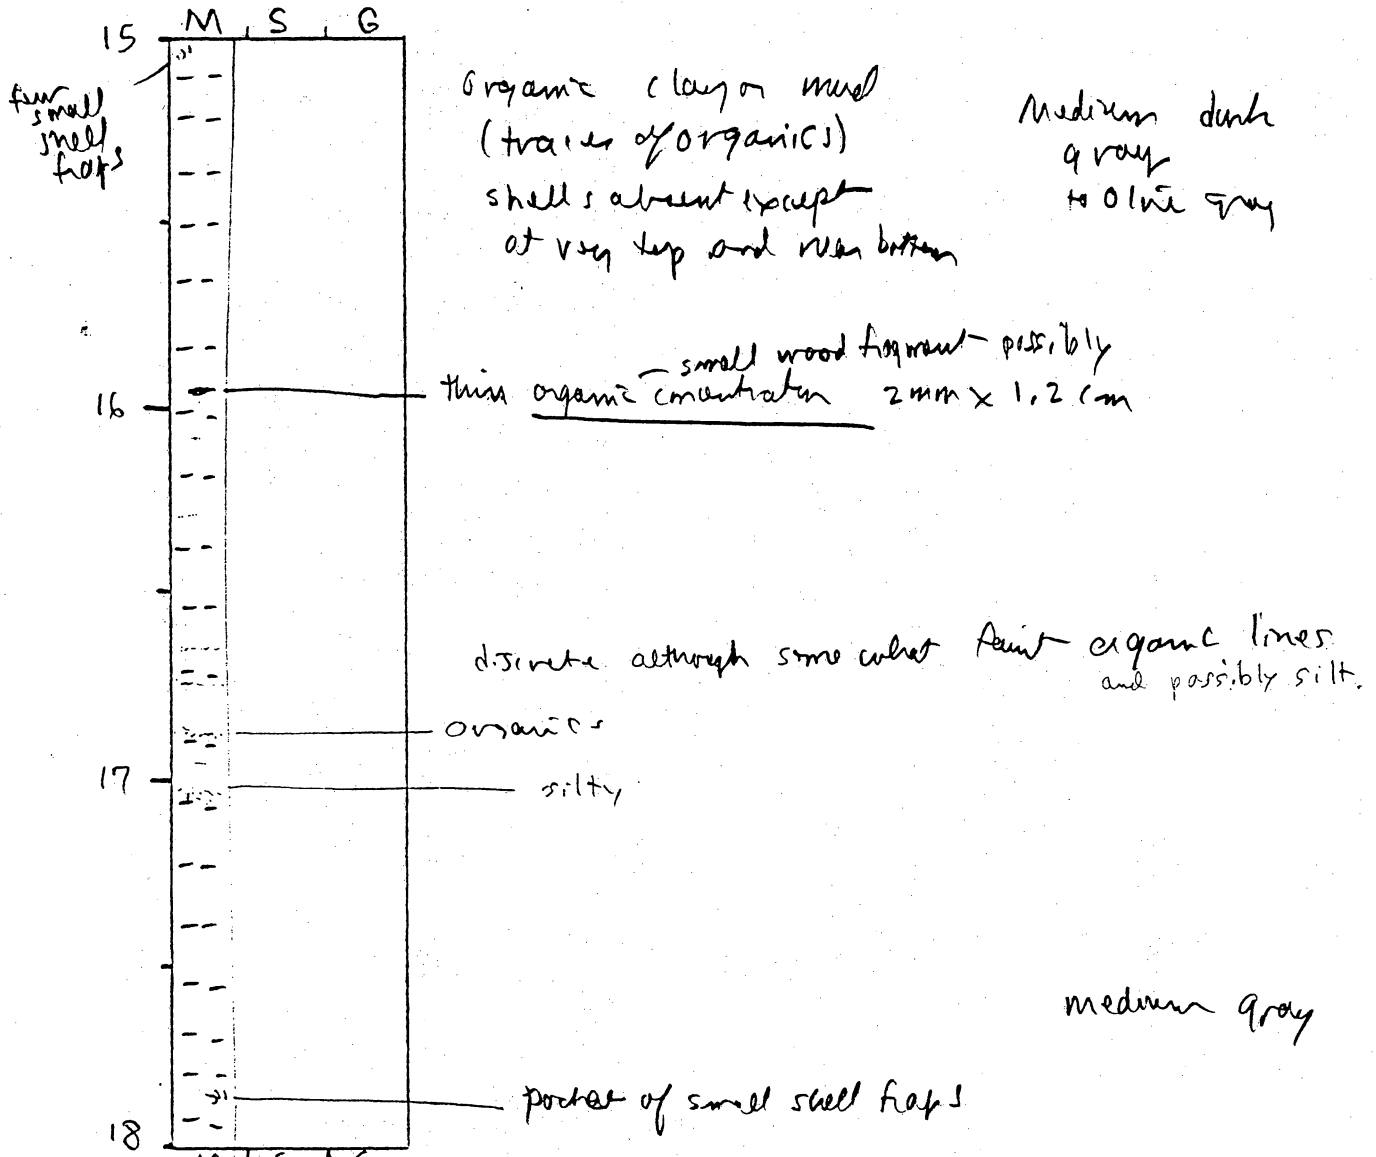 M S G
15
few
small
shell
frags
organic clay or mud
(traces of organics)
shells absent except
at very top and near bottom
Medium dark
gray
to olive gray
small wood fragment possibly
16
thin organic concentration 2mm x 1.2 cm
discrete although somewhat faint organic lines
and possibly silt.
organics
17
silty
medium gray
pocket of small shell frags
18